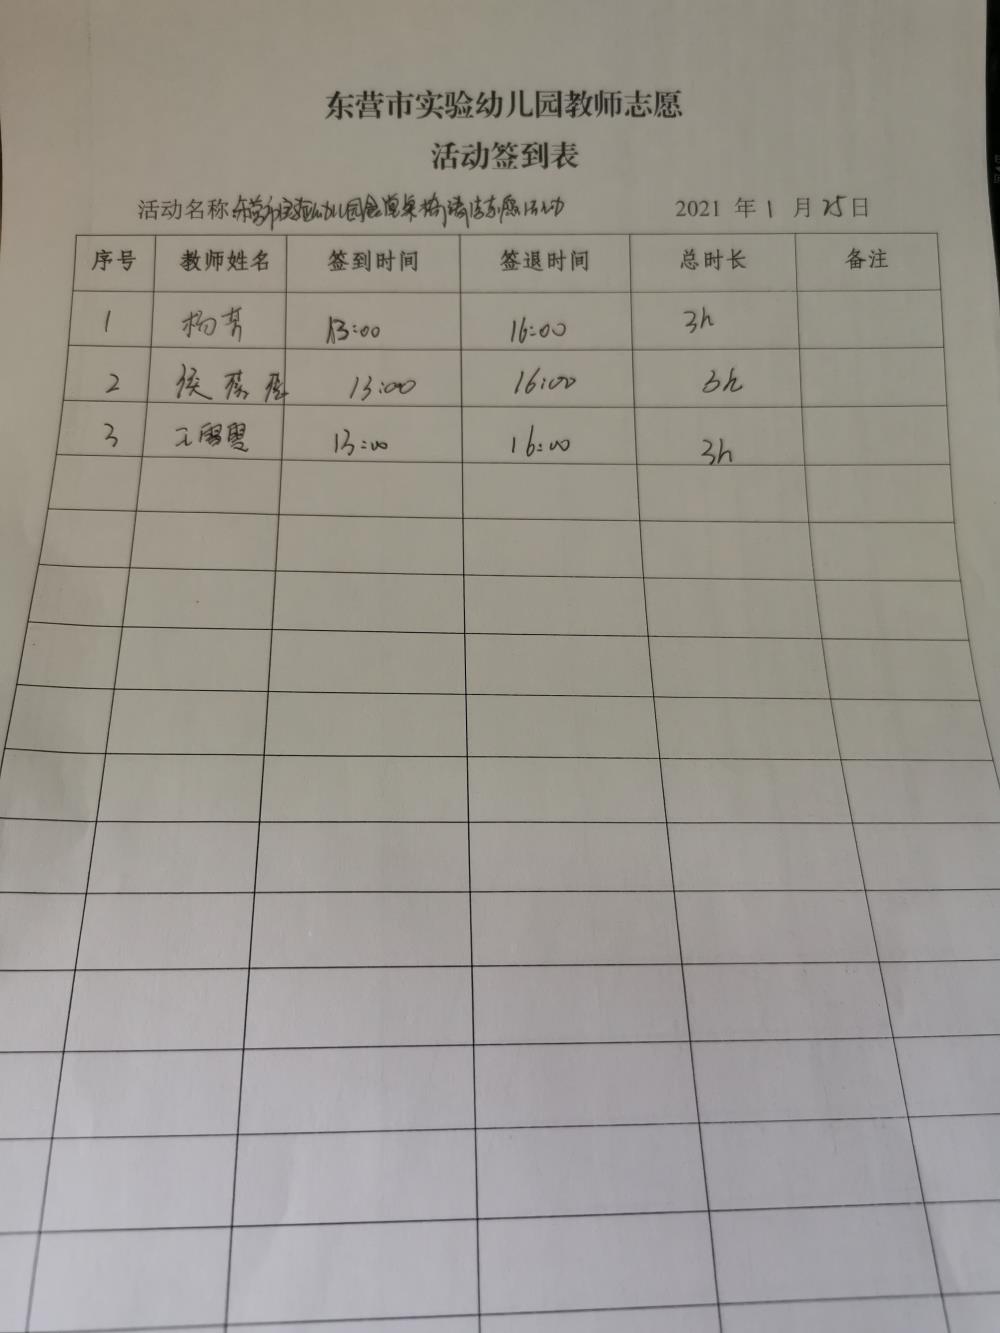 东营市实验幼儿园教师志愿
活动签到表
活动名称 东营市实验幼儿园食堂桌椅清洁志愿活动 2021 年 1 月 25 日
序号 教师姓名 签到时间 签退时间 总时长 备注
1 杨菁 13:00 16:00 3h
2 侯蓓蓓 13:00 16:00 3h
3 13:00 16:00 3h